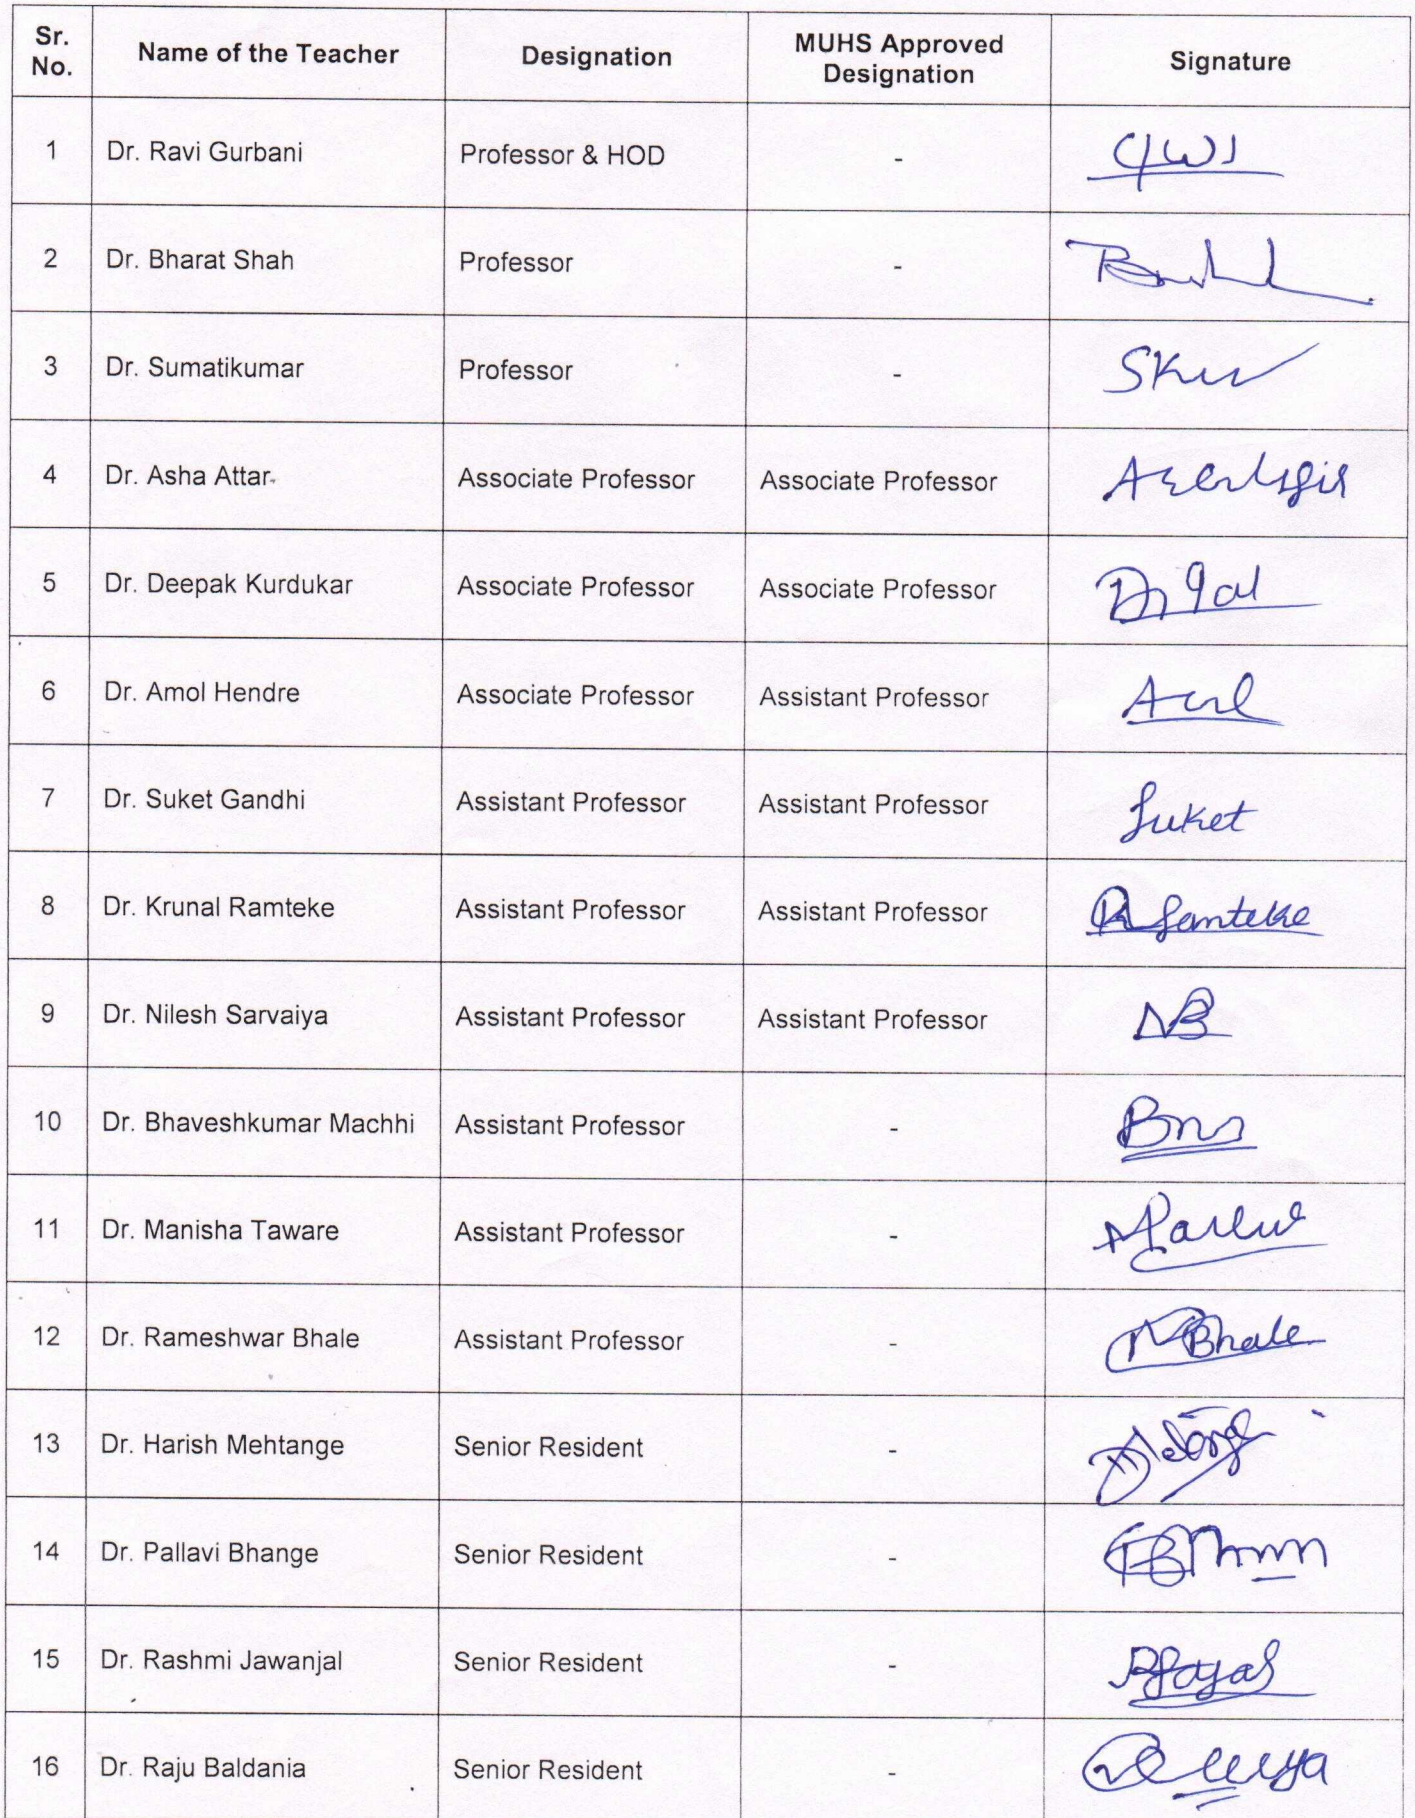 Sr. No. Name of the Teacher Designation MUHS Approved Designation Signature
1 Dr. Ravi Gurbani Professor & HOD -
2 Dr. Bharat Shah Professor -
3 Dr. Sumatikumar Professor -
4 Dr. Asha Attar Associate Professor Associate Professor
5 Dr. Deepak Kurdukar Associate Professor Associate Professor
6 Dr. Amol Hendre Associate Professor Assistant Professor
7 Dr. Suket Gandhi Assistant Professor Assistant Professor Suket
8 Dr. Krunal Ramteke Assistant Professor Assistant Professor Ramteke
9 Dr. Nilesh Sarvaiya Assistant Professor Assistant Professor
10 Dr. Bhaveshkumar Machhi Assistant Professor -
11 Dr. Manisha Taware Assistant Professor -
12 Dr. Rameshwar Bhale Assistant Professor - Bhale
13 Dr. Harish Mehtange Senior Resident -
14 Dr. Pallavi Bhange Senior Resident -
15 Dr. Rashmi Jawanjal Senior Resident -
16 Dr. Raju Baldania Senior Resident -